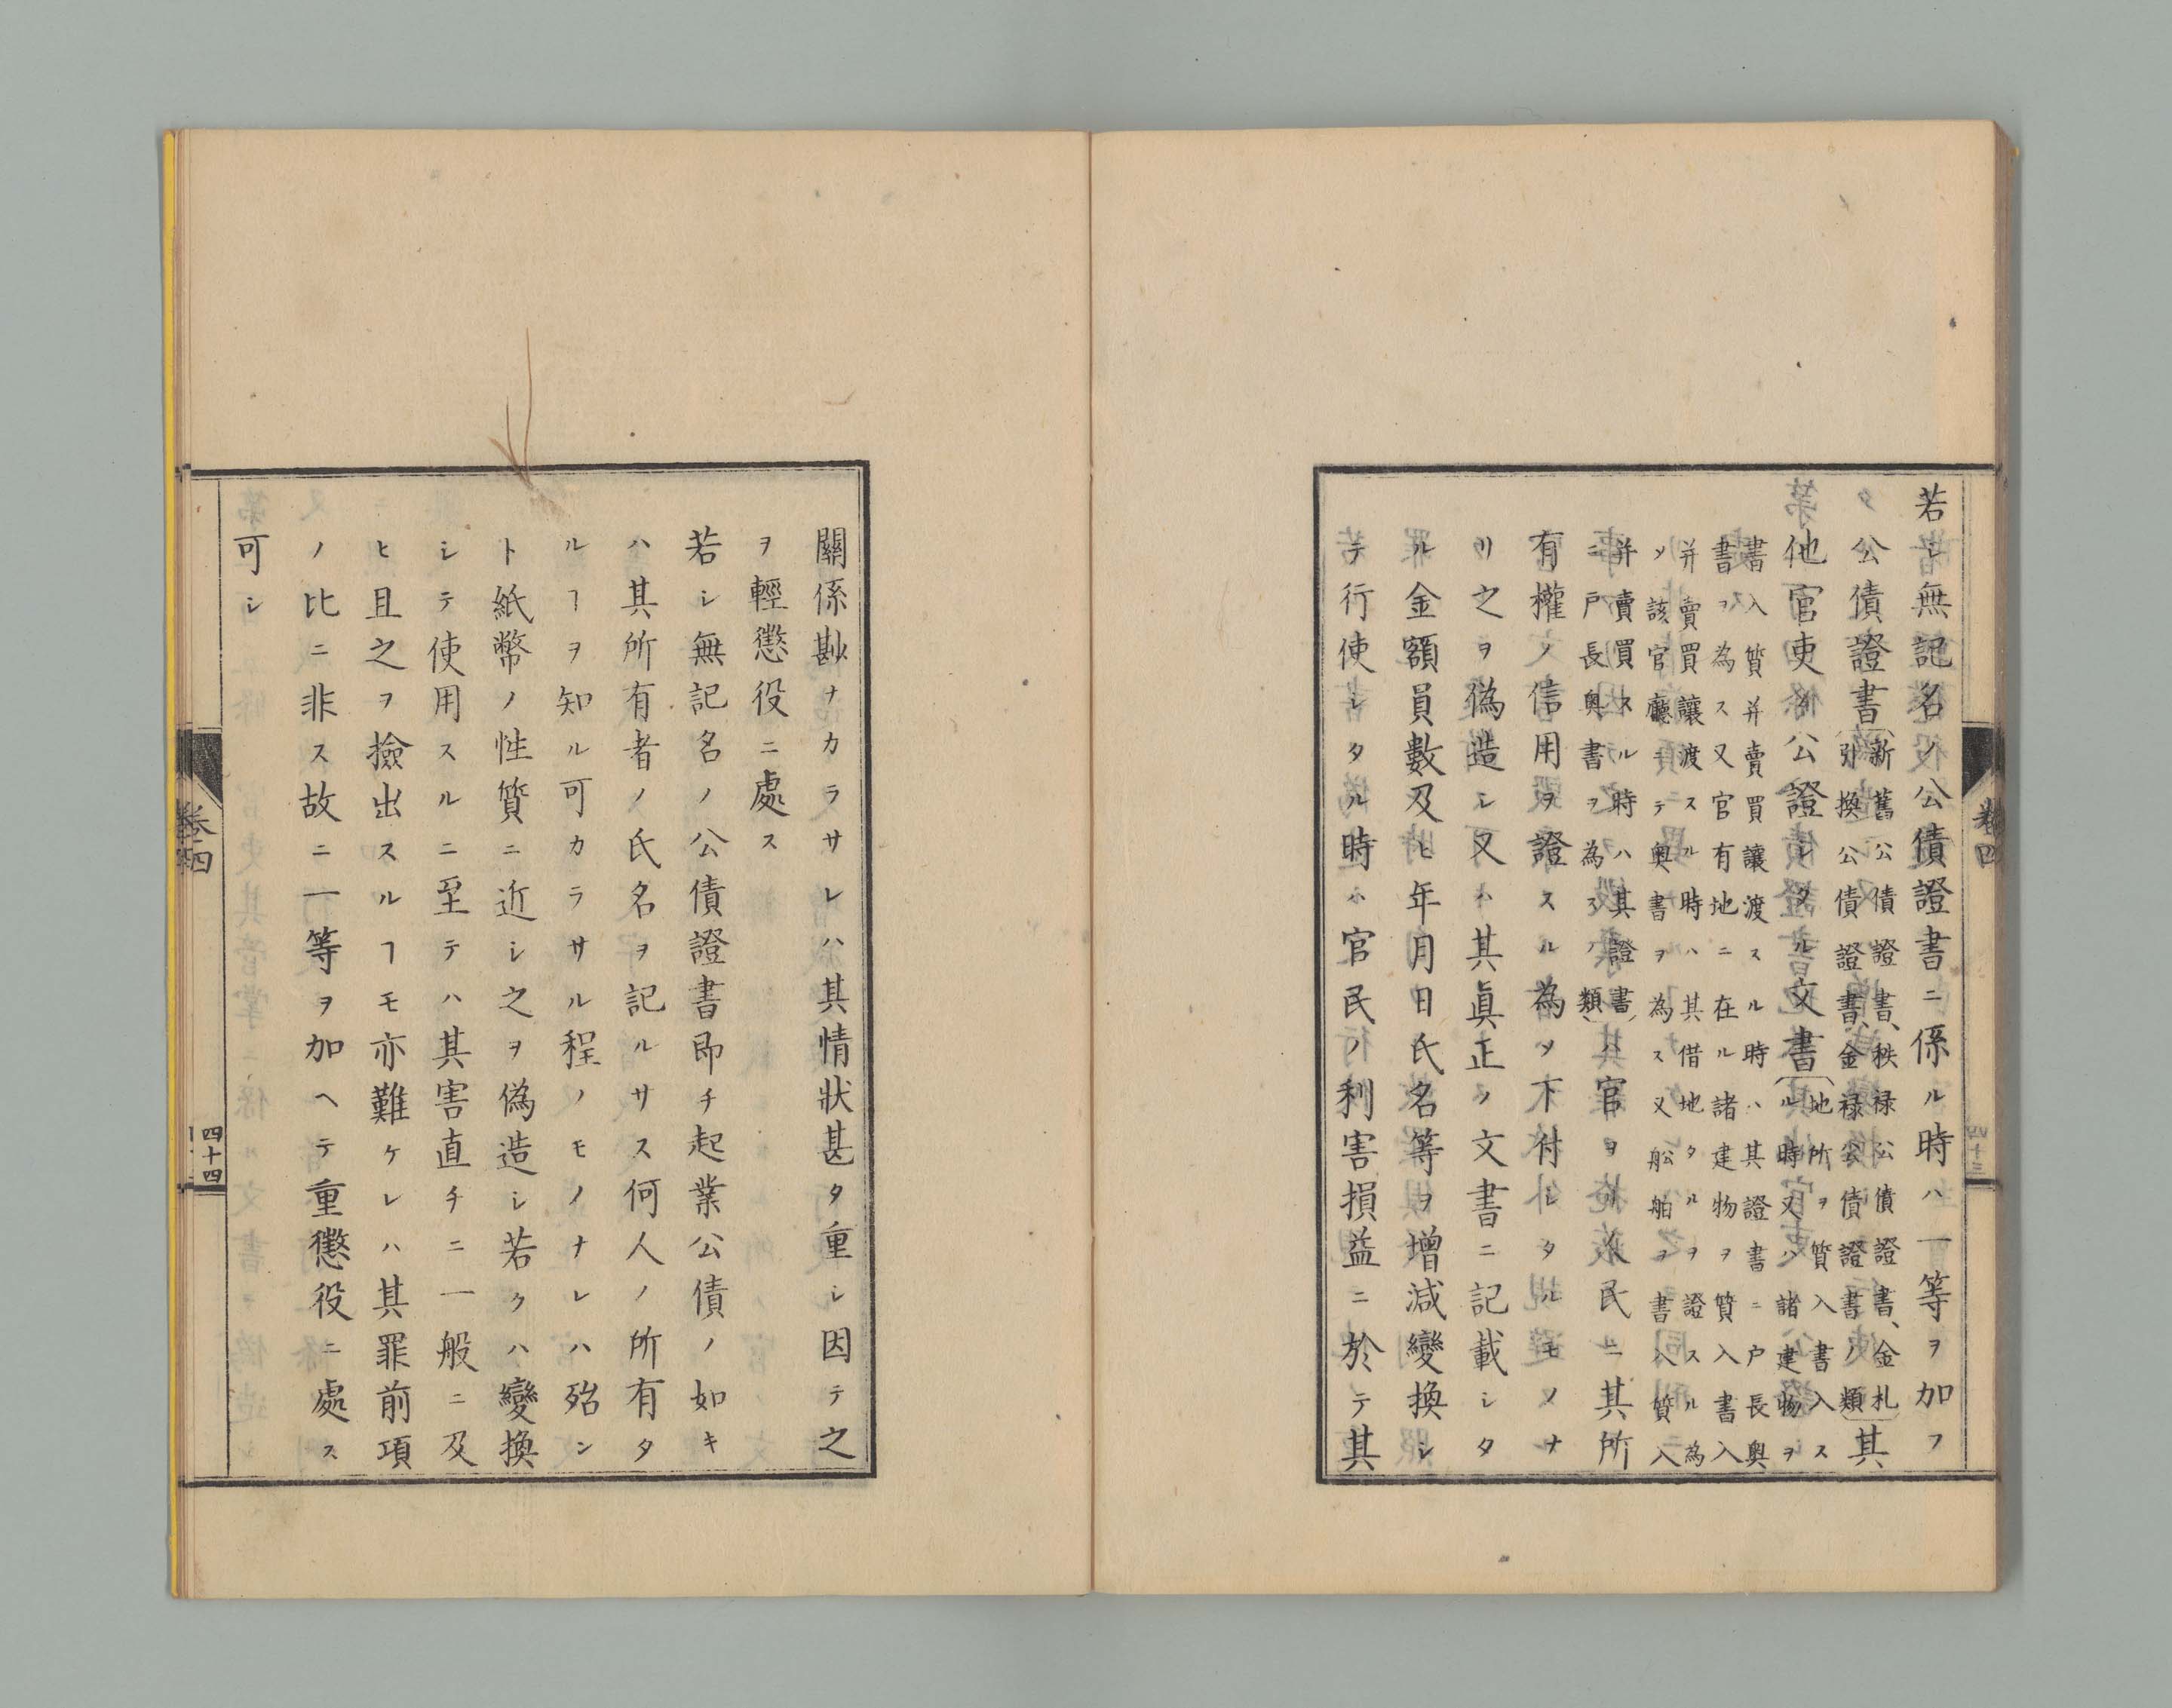 若シ無記名ノ公債證書ニ係ル時ハ一等ヲ加フ
公債證書(新舊公債證書、秩禄公債證書、金札
引換公債證書、金禄公債證書ノ類)其
他官吏ノ公證シタル文書(地所ヲ質入書入ス
ル時又ハ諸建物ヲ
書入質并賣買讓渡スル時ハ其證書ニ戸長奥
書ヲ為ス又官有地ニ在ル諸建物ヲ質入書入
并賣買讓渡スル時ハ其借地タルヲ證スル為
メ該官廳ニテ奥書ヲ為ス又舩舶ヲ書入質入
并賣買スル時ハ其證書
ニ戸長奥書ヲ為スノ類)ハ官ヨリ人民ニ其所
有權ノ信用ヲ證スル為メ下付シタルモノナ
リ之ヲ偽造シ又ハ其眞正ノ文書ニ記載シタ
ル金額員數及ヒ年月日氏名等ヲ增減變換シ
テ行使シタル時ハ官民ノ利害損益ニ於テ其
卷四
四十三
關係尠ナカラサレハ其情狀甚タ重シ因テ之
ヲ輕懲役ニ處ス
若シ無記名ノ公債證書即チ起業公債ノ如キ
ハ其所有者ノ氏名ヲ記ルサス何人ノ所有タ
ルヿヲ知ル可カラサル程ノモノナレハ殆ン
ト紙幣ノ性質ニ近シ之ヲ偽造シ若クハ變換
シテ使用スルニ至テハ其害直チニ一般ニ及
ヒ且之ヲ撿出スルヿモ亦難ケレハ其罪前項
ノ比ニ非ス故ニ一等ヲ加ヘテ重懲役ニ處ス
可シ
卷四
四十四